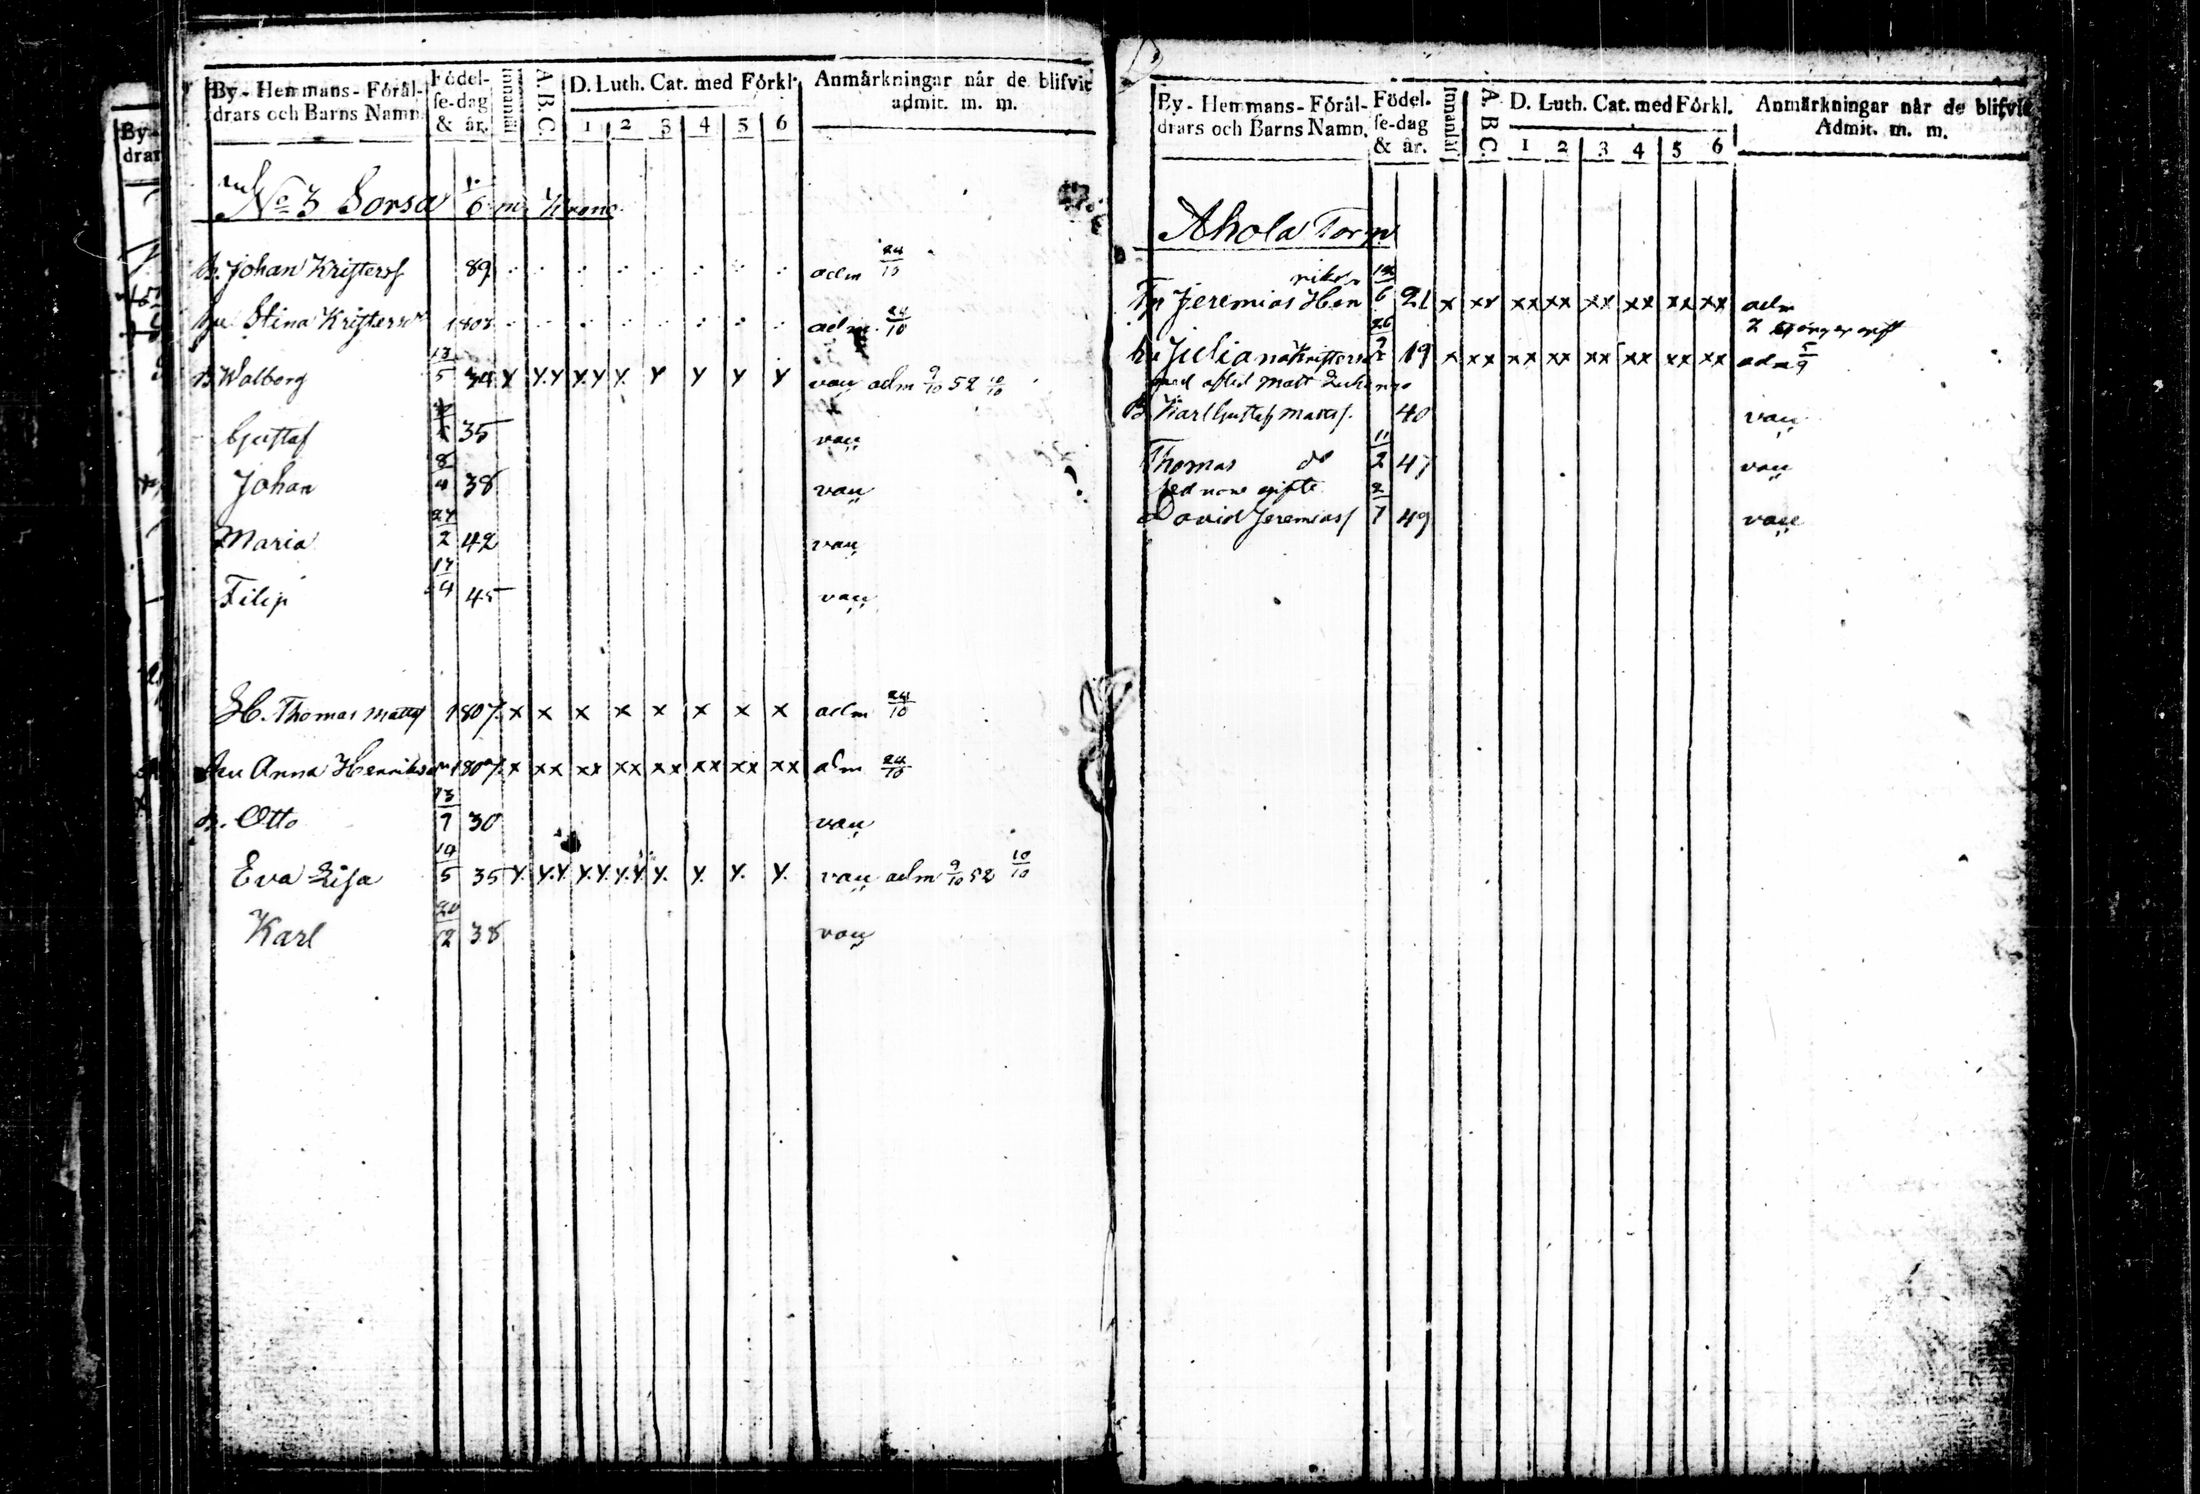 By- Hemmans- Föräl-
drars och Barns Namn.
Födel-
se-dag
& år.
Innanläs
A. B. C.
D. Luth. Cat. med Förkl.
1 2 3 4 5 6
Anmärkningar når de blifvit
admit. m. m.
No 3 Sorsa 1/6 m. Krono
B. Johan Kristerss 89 adm 24/10
hu Stina Kristersdr 1803 adm 24/10
B Walborg 13/5 34 y y.y y.y y. y y y y vac adm 9/10 52 10/10
Gustaf 35 vac
Johan 8/4 38 vac
Maria 24/2 42 vac
Filip 17/4 45 vac
H. Thomas Matts 1807 x x x x x x x x adm 24/10
hu Anna Henriksdr 1807 x xx xx xx xx xx xx xx adm 24/10
B. Otto 13/7 30 vac
Eva Lisa 14/5 35 y. y.y y.y. y.y y. y. y. y. vac adm 9/10 52 10/10
Karl 20/12 38 vac
By- Hemmans- Föräl-
drars och Barns Namn.
Födel.
se-dag
& år.
Innanläs
A. B C.
D. Luth. Cat. med Förkl.
1 2 3 4 5 6
Anmärkningar når de blifvit
Admit. m. m.
Ahola Torp
Tp Jeremias Hen riks 6 21 x xx xx xx xx xx xx xx adm
2 gånger gift
hu Juliana Kristersdr 26 19 x xx xx xx xx xx xx xx adm 5/9
med aflid Matt
B Karl Gustaf Matts 40 vac
Thomas do 11/2 47 vac
med nuv. gifte
David Jeremiass 2/7 49 vac